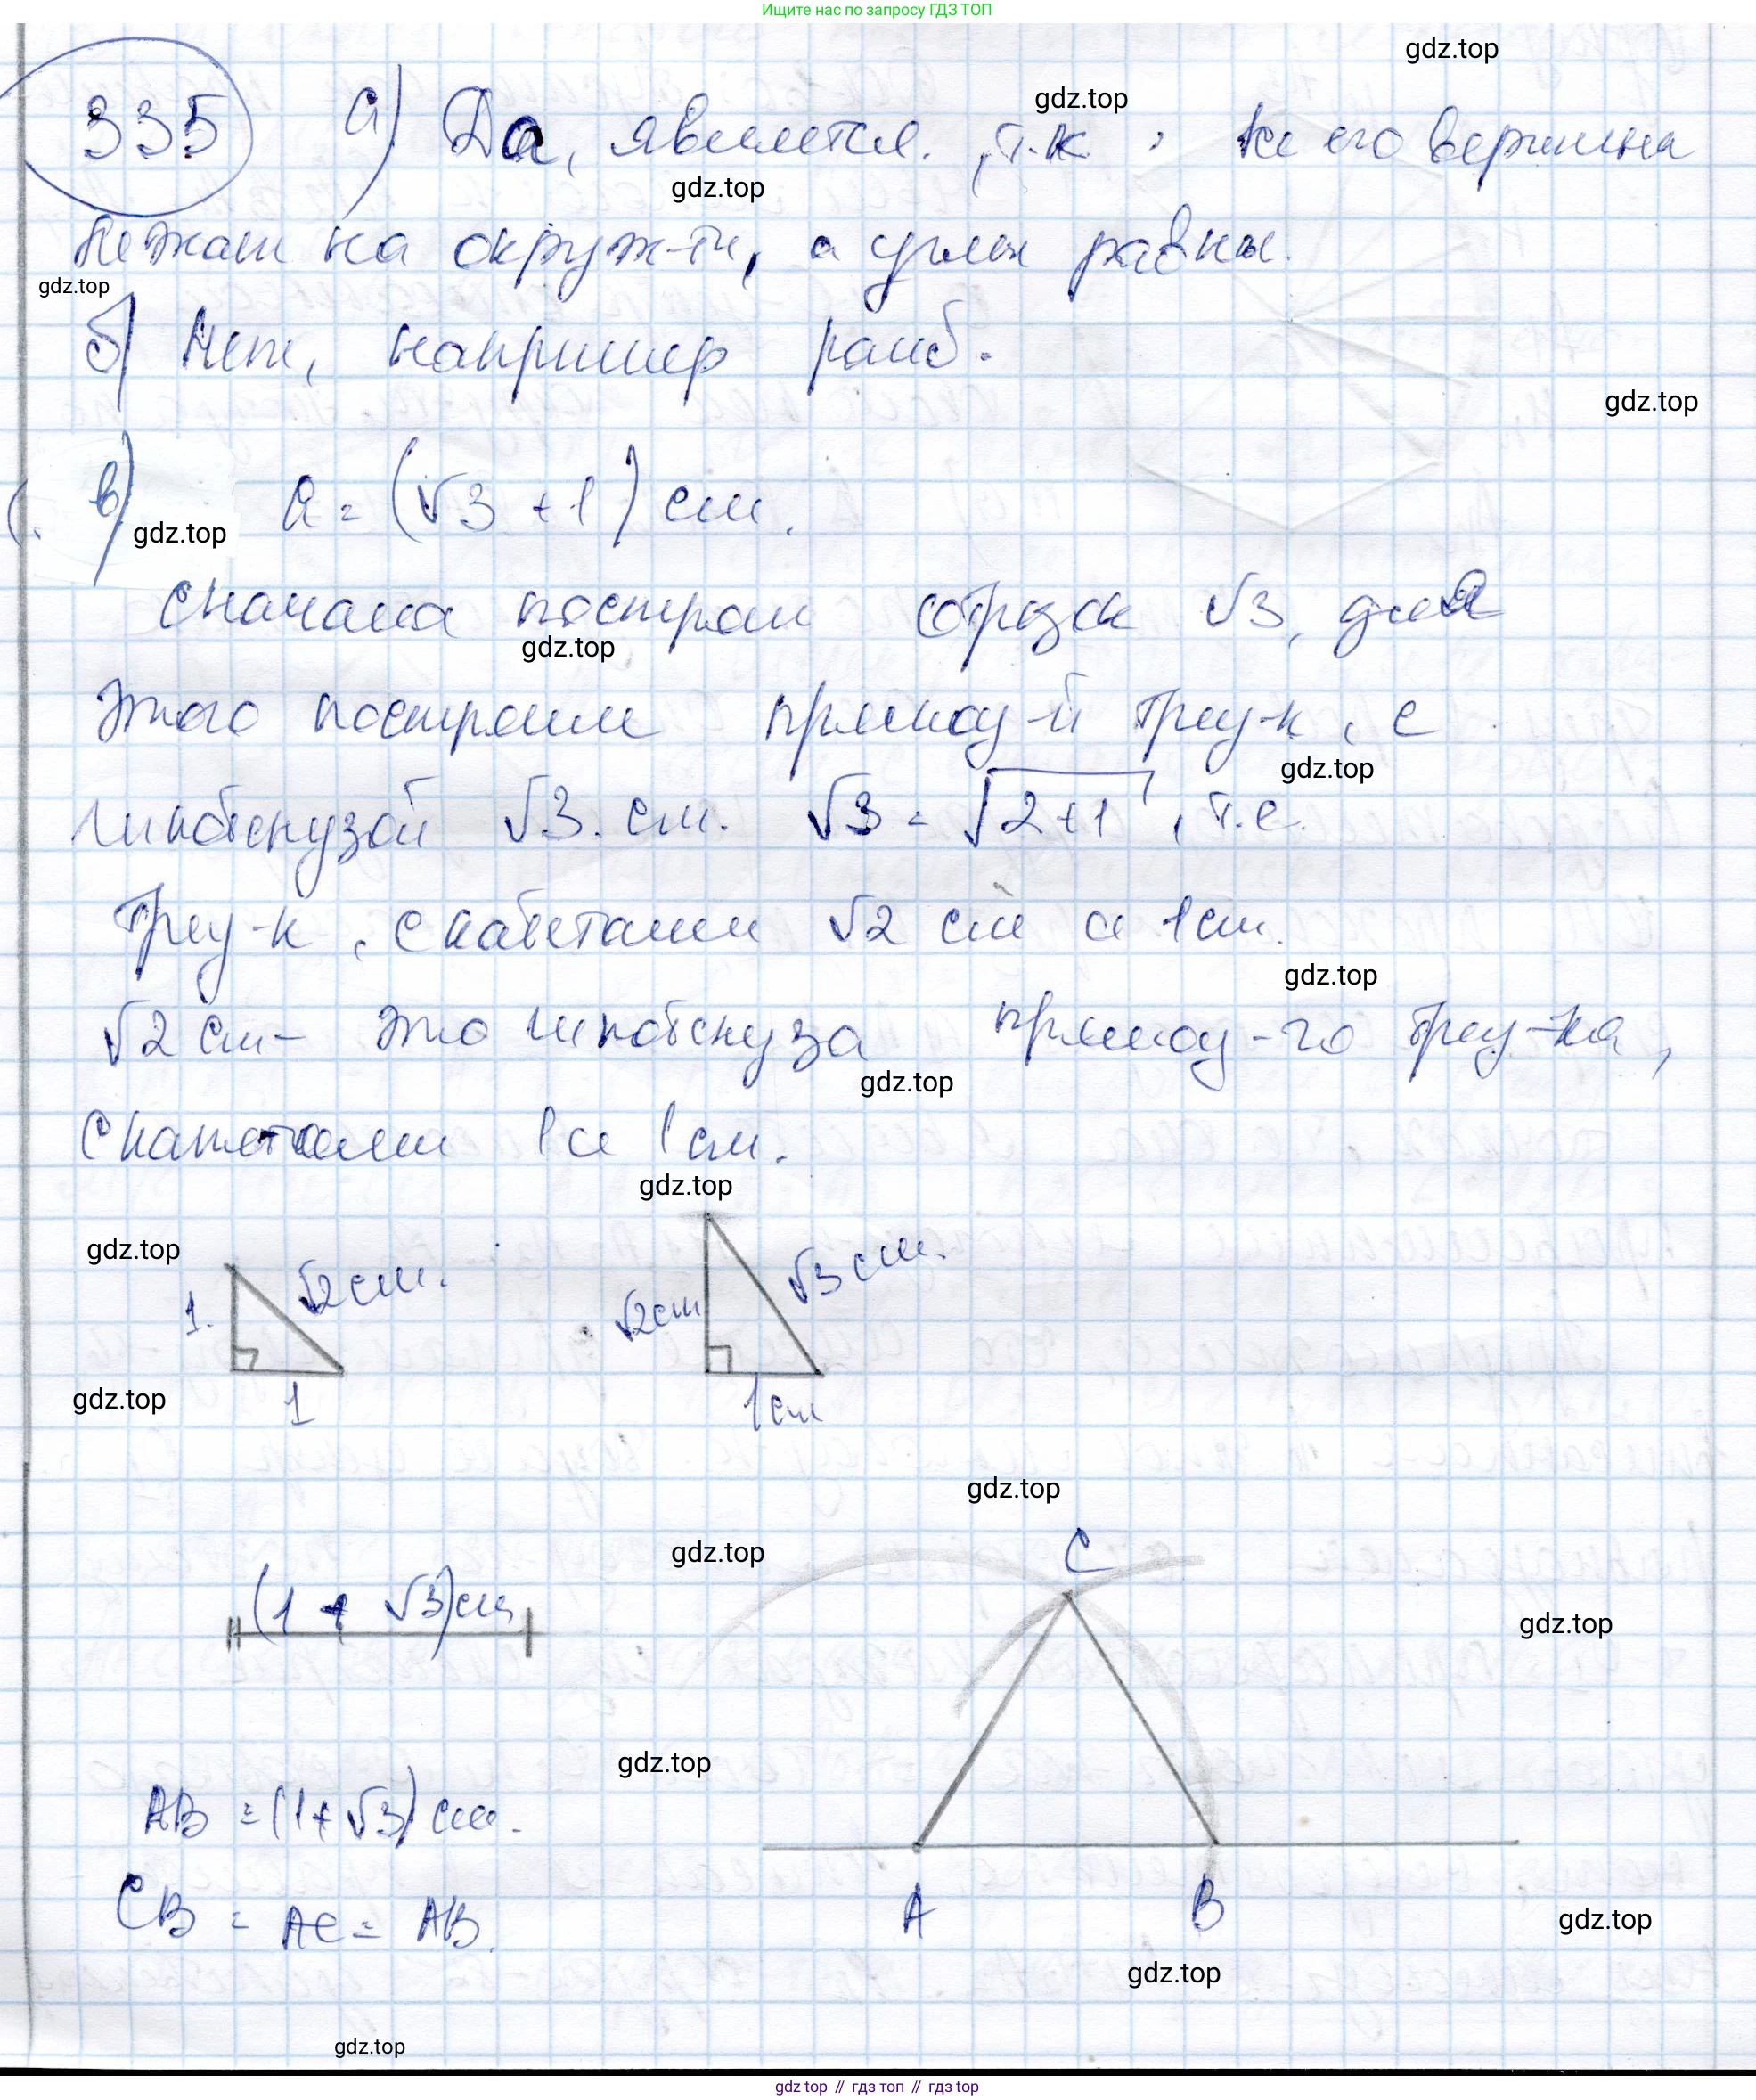 Ищите нас по запросу ГДЗ ТОП
gdz.top
335 а) Да, является, т.к. его вершины
gdz.top
gdz.top
лежат на окруж-ти, а углы равны.
gdz.top
б) Нет, например ромб.
gdz.top
в) a = (√3 + 1) см.
gdz.top
Сначала построим отрезок √3, для
gdz.top
этого построим прямоу-й треу-к, с
gdz.top
гипотенузой √3. см. √3 = √2+1, т.е.
треу-к, с катетами √2 см и 1 см.
gdz.top
√2 см - это гипотенуза прямоу-го треу-ка,
gdz.top
с катетами 1 и 1 см.
gdz.top
gdz.top
1. √2 см.
√2 см √3 см.
gdz.top
1
1 см
gdz.top
gdz.top
C
(1 + √3) см
gdz.top
gdz.top
AB = (1 + √3) см.
CB = AC = AB.
A B
gdz.top
gdz.top
gdz.top
gdz top // гдз топ // gdz top